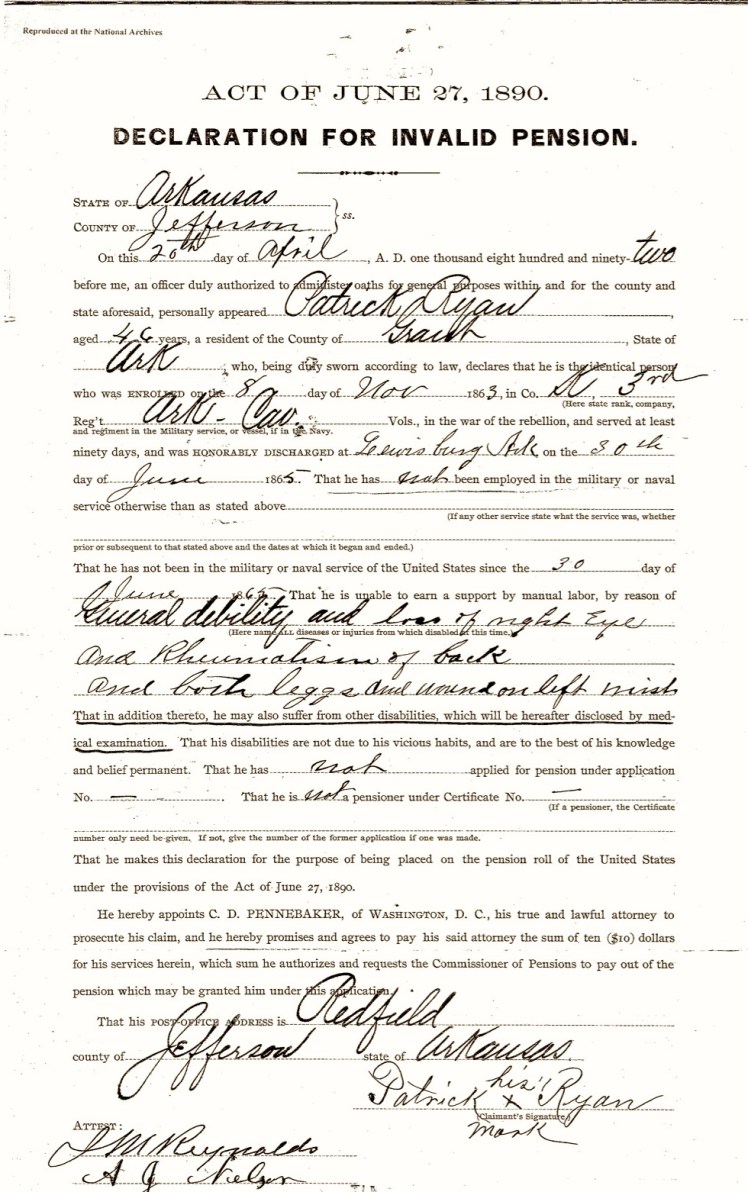 Reproduced at the National Archives
ACT OF JUNE 27, 1890.
DECLARATION FOR INVALID PENSION.
STATE OF Arkansas
COUNTY OF Jefferson } ss.
On this 20th day of April, A. D. one thousand eight hundred and ninety-two
before me, an officer duly authorized to administer oaths for general purposes within and for the county and
state aforesaid, personally appeared Patrick Ryan,
aged 46 years, a resident of the County of Grant, State of
Ark; who, being duly sworn according to law, declares that he is the identical person
who was ENROLLED on the 8 day of Nov 1863, in Co. K, 3rd
(Here state rank, company,
Reg't Ark - Cav. Vols., in the war of the rebellion, and served at least
and regiment in the Military service, or vessel, if in the Navy.
ninety days, and was HONORABLY DISCHARGED at Lewisburg Ark on the 30th
day of June 1865. That he has not been employed in the military or naval
service otherwise than as stated above
(If any other service state what the service was, whether
prior or subsequent to that stated above and the dates at which it began and ended.)
That he has not been in the military or naval service of the United States since the 30 day of
June 1865. That he is unable to earn a support by manual labor, by reason of
General debility and loss of right Eye
(Here name ALL diseases or injuries from which disabled at this time.)
and Rheumatism of back
and both leggs and wound on left wrist
That in addition thereto, he may also suffer from other disabilities, which will be hereafter disclosed by med-
ical examination. That his disabilities are not due to his vicious habits, and are to the best of his knowledge
and belief permanent. That he has not applied for pension under application
No. — . That he is not a pensioner under Certificate No. —
(If a pensioner, the Certificate
number only need be given. If not, give the number of the former application if one was made.
That he makes this declaration for the purpose of being placed on the pension roll of the United States
under the provisions of the Act of June 27, 1890.
He hereby appoints C. D. PENNEBAKER, of WASHINGTON, D. C., his true and lawful attorney to
prosecute his claim, and he hereby promises and agrees to pay his said attorney the sum of ten ($10) dollars
for his services herein, which sum he authorizes and requests the Commissioner of Pensions to pay out of the
pension which may be granted him under this application.
That his POST-OFFICE ADDRESS is Redfield
county of Jefferson state of Arkansas.
his
Patrick x Ryan
(Claimant's Signature.)
mark
ATTEST:
J M Reynolds
A J Nelson